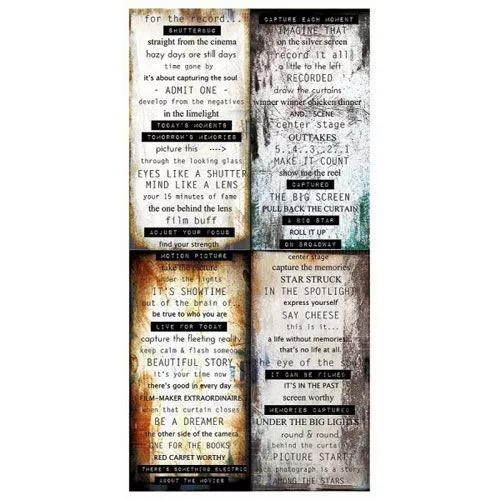 for the record...
SHUTTERBUG
straight from the cinema
hazy days are still days
time gone by
it's about capturing the soul
- ADMIT ONE -
develop from the negatives
in the limelight
TODAY'S MOMENTS
TOMORROW'S MEMORIES
picture this ---->
through the looking glass
EYES LIKE A SHUTTER
MIND LIKE A LENS
your 15 minutes of fame
the one behind the lens
film buff
ADJUST YOUR FOCUS
find your strength
CAPTURE EACH MOMENT
IMAGINE THAT
on the silver screen
record it all
a little to the left
RECORDED
draw the curtains
winner winner chicken dinner
AND, SCENE
center stage
OUTTAKES
5..4..3..2..1
MAKE IT COUNT
show me the reel
CAPTURED
THE BIG SCREEN
PULL BACK THE CURTAIN
A BIG STAR
ROLL IT UP
ON BROADWAY
MOTION PICTURE
take the picture
under the lights
IT'S SHOWTIME
out of the brain of..
be true to who you are
LIVE FOR TODAY
capture the fleeting reality
keep calm & flash someone
BEAUTIFUL STORY
it's your time now
there's good in every day
FILM-MAKER EXTRAORDINAIRE
when that curtain closes
BE A DREAMER
the other side of the camera
ONE FOR THE BOOKS
RED CARPET WORTHY
THERE'S SOMETHING ELECTRIC
ABOUT THE MOVIES
center stage
capture the memories
STAR STRUCK
IN THE SPOTLIGHT
express yourself
SAY CHEESE
this is it...
a life without memories...
that's no life at all.
the eye of the soul
IT CAN BE FILMED
IT'S IN THE PAST
screen worthy
MEMORIES CAPTURED
UNDER THE BIG LIGHTS
round & round
behind the curtain
PICTURE START
each photograph is a story
AMONG THE STARS